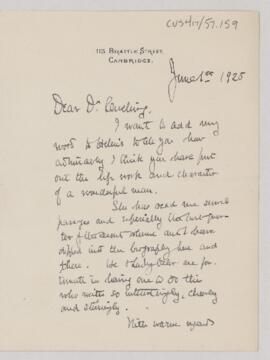 CUS417/57.159
115 BRATTLE STREET.
CAMBRIDGE.
June 1st 1925
Dear Dr.
I want to add my
word to Helen's to tell you how
admirably I think you have put
out the life work and character
of a wonderful man.
She has read me several
passages and especially the
of the second volume and I have
dipped into the biography here and
there. We
in having one to do this
who writes so interestingly, clearly
and
With warm regards